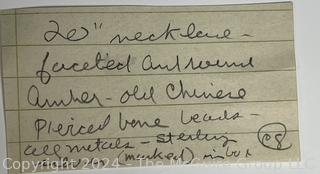 20" necklace -
faceted and round
amber - old Chinese
pierced bone beads -
all metals - sterling
(marked) in box
08
Copyright 2024